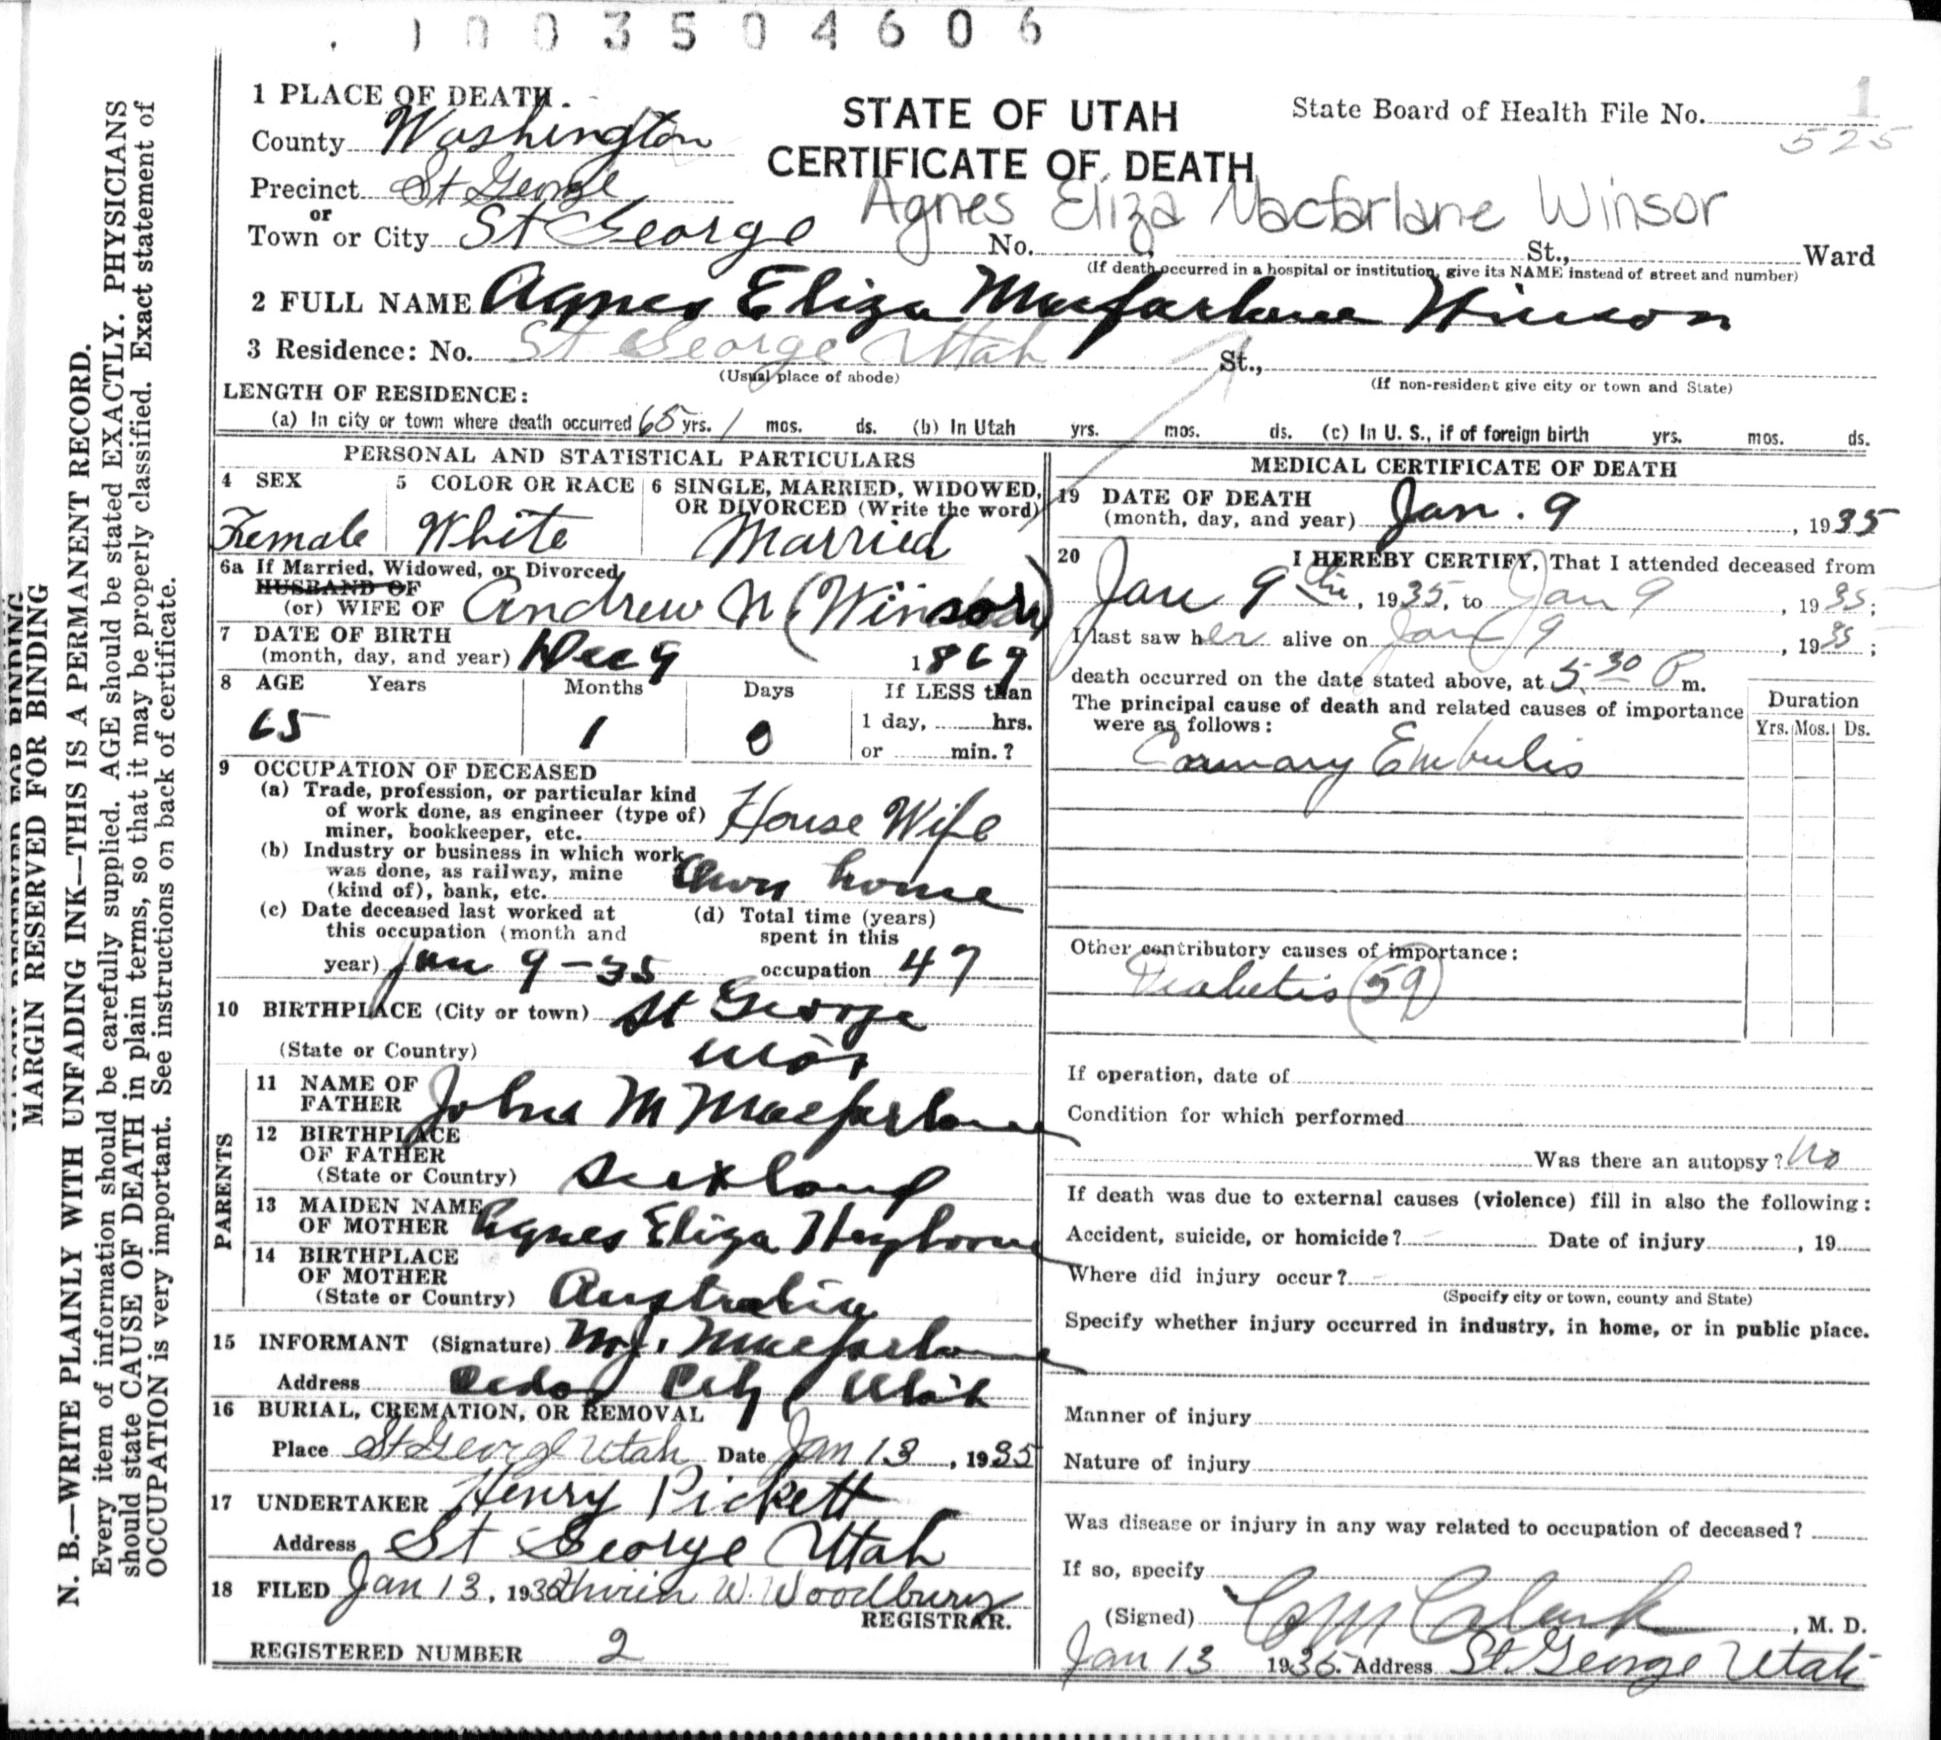 1003504606
1 PLACE OF DEATH.
County Washington
STATE OF UTAH
CERTIFICATE OF DEATH
State Board of Health File No. 1
525
Precinct St George
or
Agnes Eliza Macfarlane Winsor
Town or City St George No. St., Ward
(If death occurred in a hospital or institution, give its NAME instead of street and number)
2 FULL NAME Agnes Eliza Macfarlane Winsor
3 Residence: No. St George Utah St.,
(Usual place of abode) (If non-resident give city or town and State)
LENGTH OF RESIDENCE:
(a) In city or town where death occurred 65 yrs. 1 mos. ds. (b) In Utah yrs. mos. ds. (c) In U. S., if of foreign birth yrs. mos. ds.
PERSONAL AND STATISTICAL PARTICULARS
4 SEX
Female
5 COLOR OR RACE
White
6 SINGLE, MARRIED, WIDOWED,
OR DIVORCED (Write the word)
Married
6a If Married, Widowed, or Divorced
HUSBAND OF
(or) WIFE OF Andrew N (Winsor)
7 DATE OF BIRTH
(month, day, and year) Dec 9 1869
8 AGE Years Months Days If LESS than
65 1 0 1 day, hrs.
or min.?
9 OCCUPATION OF DECEASED
(a) Trade, profession, or particular kind
of work done, as engineer (type of)
miner, bookkeeper, etc. House Wife
(b) Industry or business in which work
was done, as railway, mine
(kind of), bank, etc. Own home
(c) Date deceased last worked at
this occupation (month and
year) Jan 9-35
(d) Total time (years)
spent in this
occupation 47
10 BIRTHPLACE (City or town) St George
(State or Country) Utah
PARENTS
11 NAME OF
FATHER John M Macfarlane
12 BIRTHPLACE
OF FATHER
(State or Country) Scotland
13 MAIDEN NAME
OF MOTHER Agnes Eliza Heyborne
14 BIRTHPLACE
OF MOTHER
(State or Country) Australia
15 INFORMANT (Signature) M.J. Macfarlane
Address Cedar City Utah
16 BURIAL, CREMATION, OR REMOVAL
Place St George Utah Date Jan 13, 1935
17 UNDERTAKER Henry Pickett
Address St George Utah
18 FILED Jan 13, 1935 W. Woodbury
REGISTRAR.
REGISTERED NUMBER 2
MEDICAL CERTIFICATE OF DEATH
19 DATE OF DEATH
(month, day, and year) Jan. 9, 1935
20 I HEREBY CERTIFY, That I attended deceased from
Jan 9th, 1935, to Jan 9, 1935;
I last saw her alive on Jan 9, 1935;
death occurred on the date stated above, at 5.30 P m.
The principal cause of death and related causes of importance
were as follows:
Duration
Yrs. Mos. Ds.
Embulis
Other contributory causes of importance:
Diabetis (59)
If operation, date of
Condition for which performed
Was there an autopsy? No
If death was due to external causes (violence) fill in also the following:
Accident, suicide, or homicide? Date of injury, 19
Where did injury occur?
(Specify city or town, county and State)
Specify whether injury occurred in industry, in home, or in public place.
Manner of injury
Nature of injury
Was disease or injury in any way related to occupation of deceased?
If so, specify
(Signed) Clark, M. D.
Jan 13 1935. Address St. George Utah
MARGIN RESERVED FOR BINDING
N. B.—WRITE PLAINLY WITH UNFADING INK—THIS IS A PERMANENT RECORD.
Every item of information should be carefully supplied. AGE should be stated EXACTLY. PHYSICIANS
should state CAUSE OF DEATH in plain terms, so that it may be properly classified. Exact statement of
OCCUPATION is very important. See instructions on back of certificate.